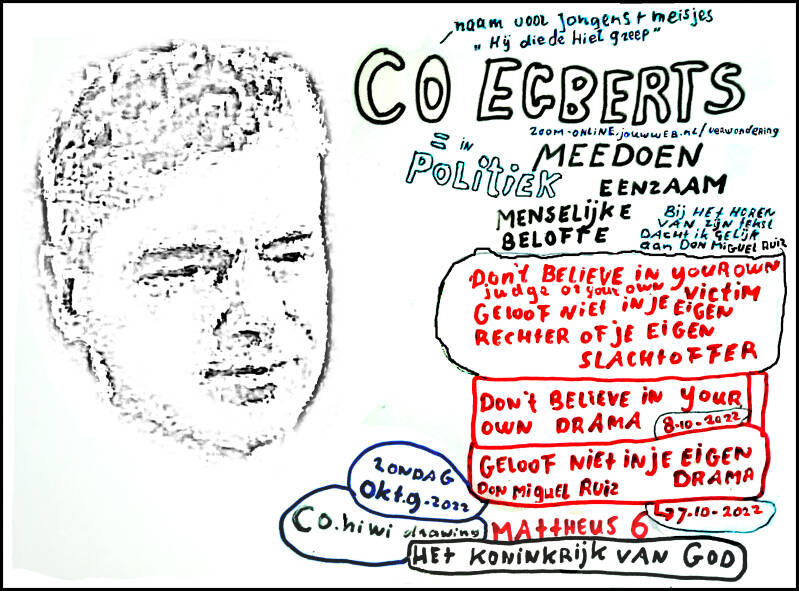 naam voor jongens + meisjes
"Hij die de hiel greep"
CO EGBERTS
ZOOM-ONLINE.jouwweb.nl/verwondering
= in
POLitiEK
MEEDOEN
EENZAAM
MENSELijKE
BELOFTE
Bij HEt HOREN
VAN Zijn tekst
DACHt ik GELijk
aan DON MiGUEL RUiZ
DON't BELiEVE iN YOUR OWN
judge or your own VICTiM
GELOOF NiEt iN JE EiGEN
RECHTER OF JE EiGEN
SLACHtOFFER
DON't BELiEVE iN YOUR
OWN DRAMA
8-10-2022
GELOOF NiEt iN JE EiGEN
DRAMA
DON MiGUEL RUiZ
7-10-2022
ZONDAG
Okt.9-2022
CO.hiwi drawing
MAttHEUS 6
HEt KONiNKRijK VAN GOD